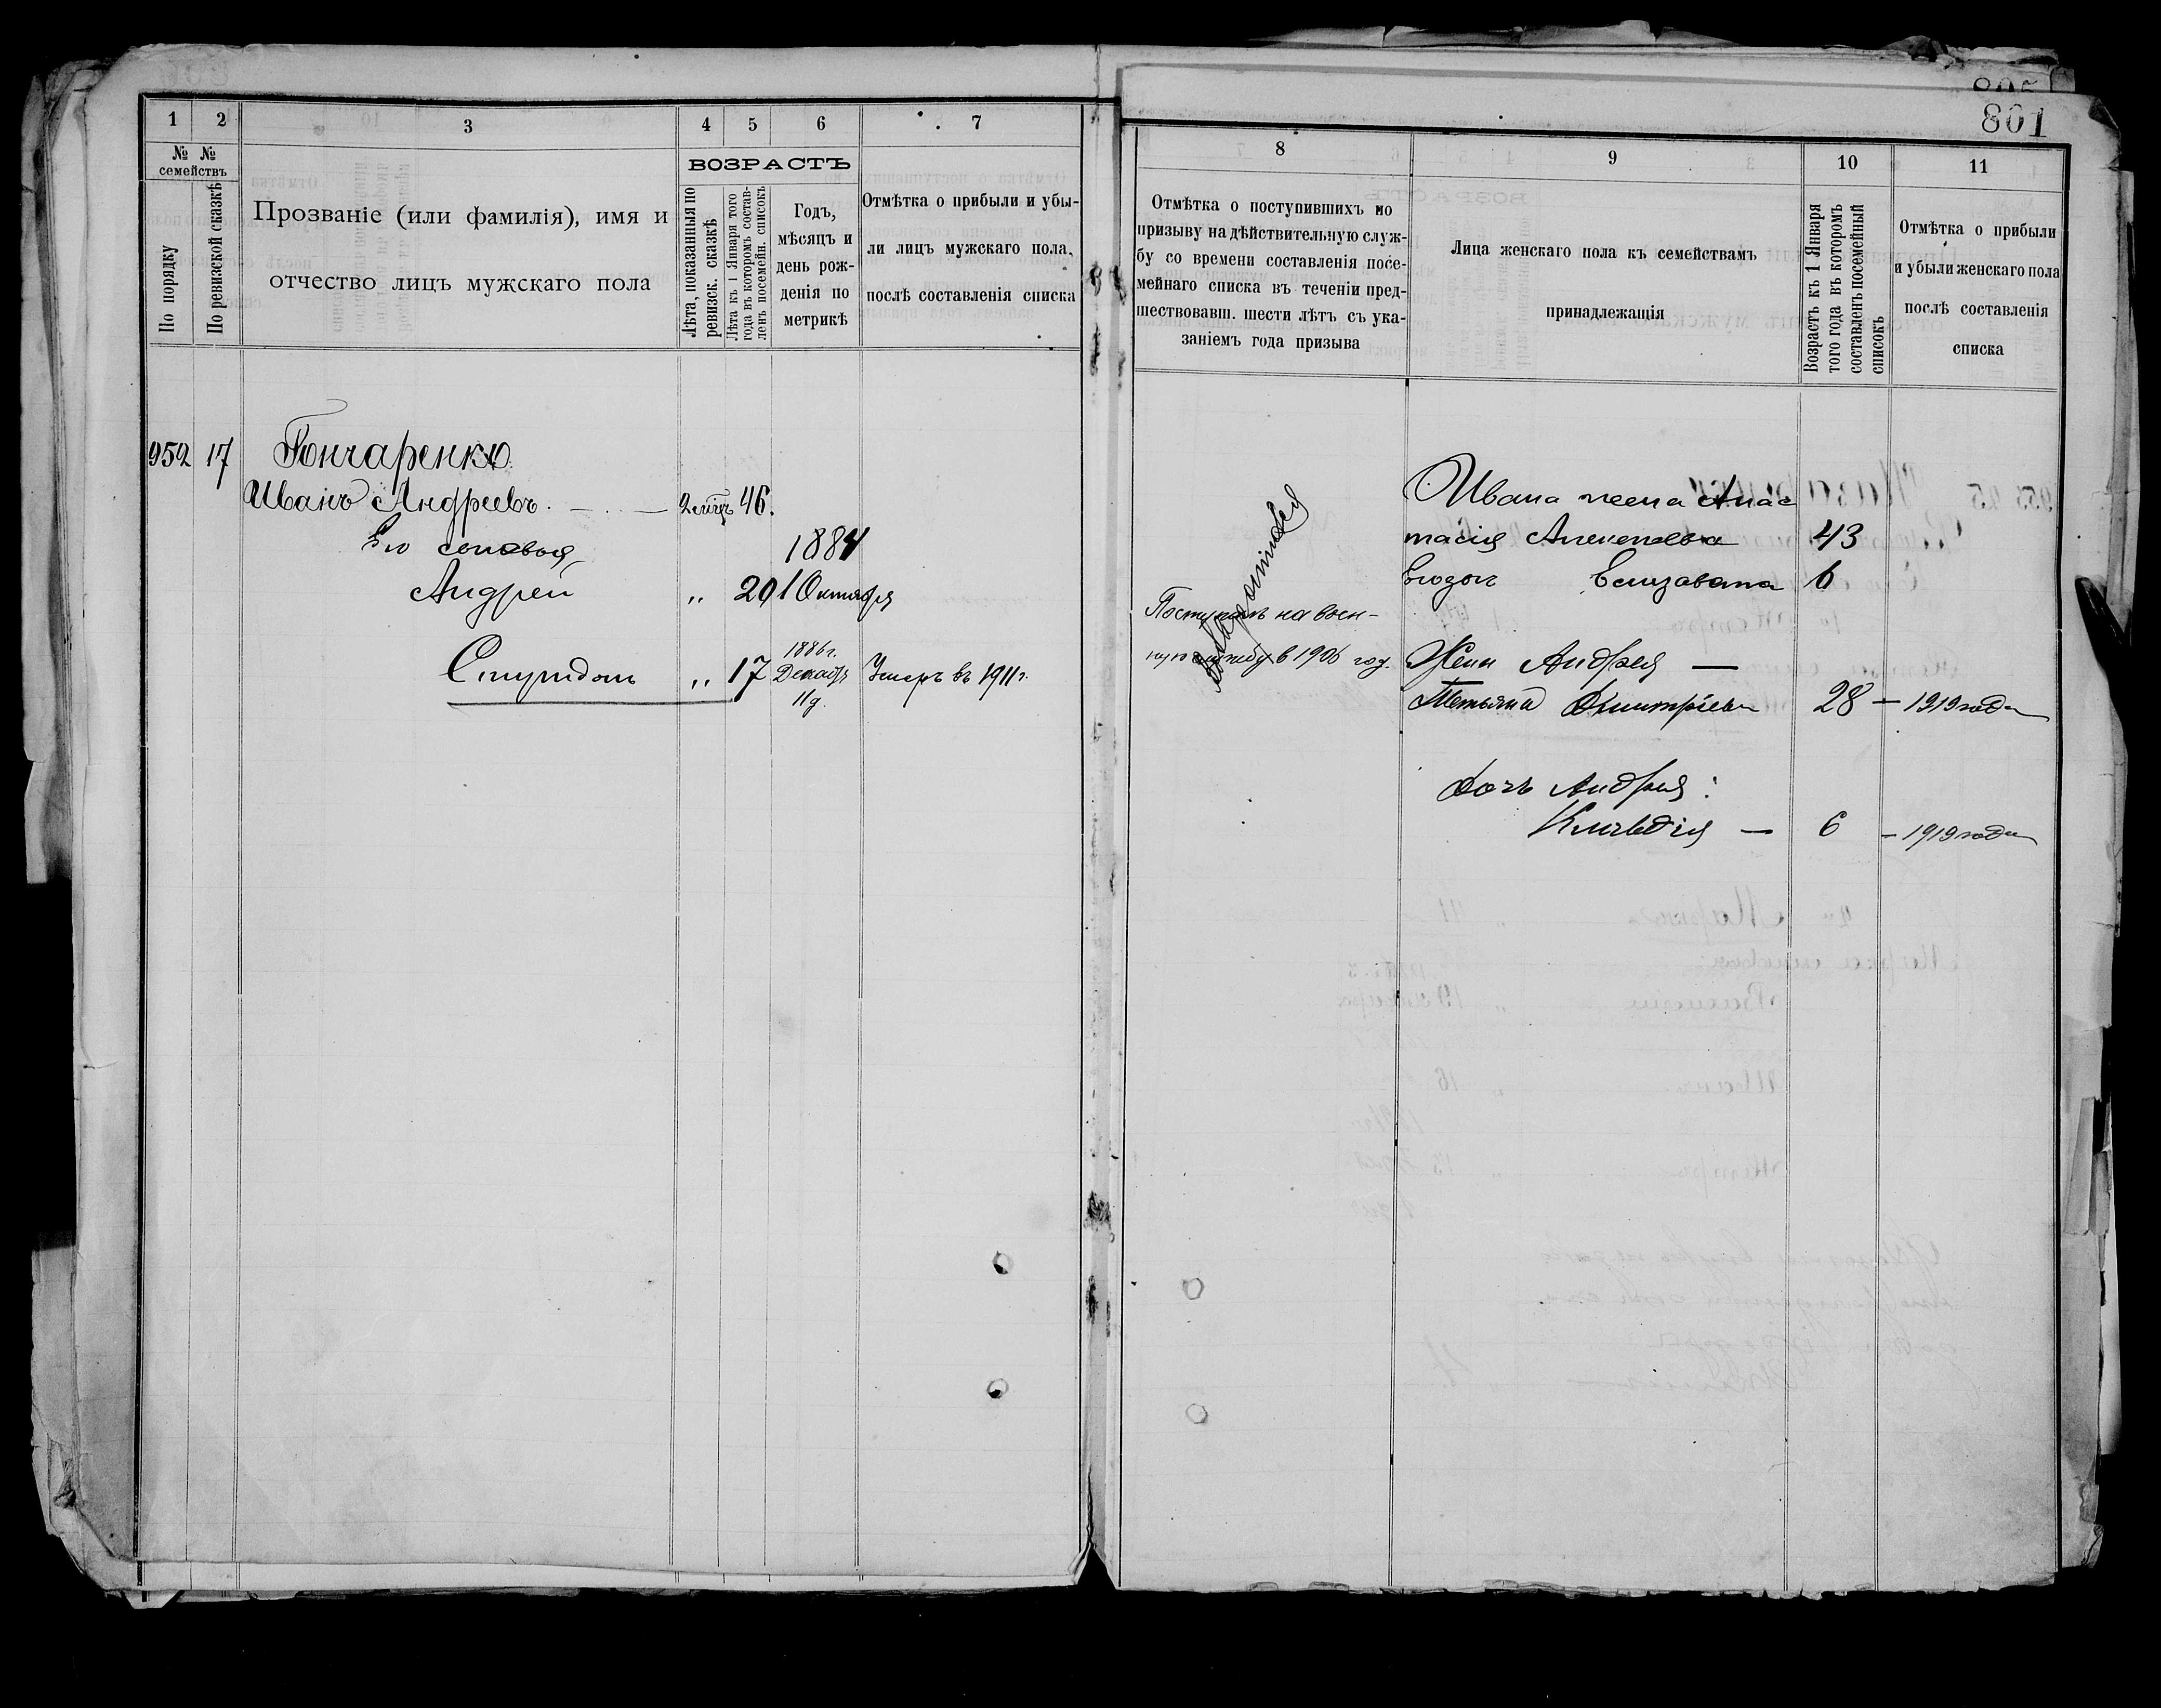 805
801
1
2
3
4
5
6
7
№ №
семействъ
По порядку
По ревизской сказкѣ
Прозваніе (или фамилія), имя и
отчество лицъ мужскаго пола
ВОЗРАСТЪ
Лѣта, показанныя по
ревизск. сказкѣ
Лѣта къ 1 Января того
года въ которомъ состав-
ленъ посемейн. списокъ
Годъ,
мѣсяцъ и
день рож-
денія по
метрикѣ
Отмѣтка о прибыли и убы-
ли лицъ мужскаго пола,
послѣ составленія списка
952 17 Гончаренко
Иванъ Андреевъ. 46.
Его сыновья
1884
Андрей " 20 1 Октября
1886 г.
Спиридонъ " 17 Декабр Умеръ въ 1911 г.
11 д.
8
9
10
11
Отмѣтка о поступившихъ по
призыву на дѣйствительную служ-
бу со времени составленія посе-
мейнаго списка въ теченіи пред-
шествовавш. шести лѣтъ съ ука-
заніемъ года призыва
Лица женскаго пола къ семействамъ
принадлежащія
Возрастъ къ 1 Января
того года въ которомъ
составленъ посемейный
списокъ
Отмѣтка о прибыли
и убыли женскаго пола
послѣ составленія
списка
Ивана жена Анас
тасія Алексеева 43
Елизавета 6
Поступилъ на воен-
ную службу в 1906 год.
Жена Андрея —
Татьяна Дмитріева 28 — 1919 года
Дочь Андрея:
Клавдія — 6 — 1919 года